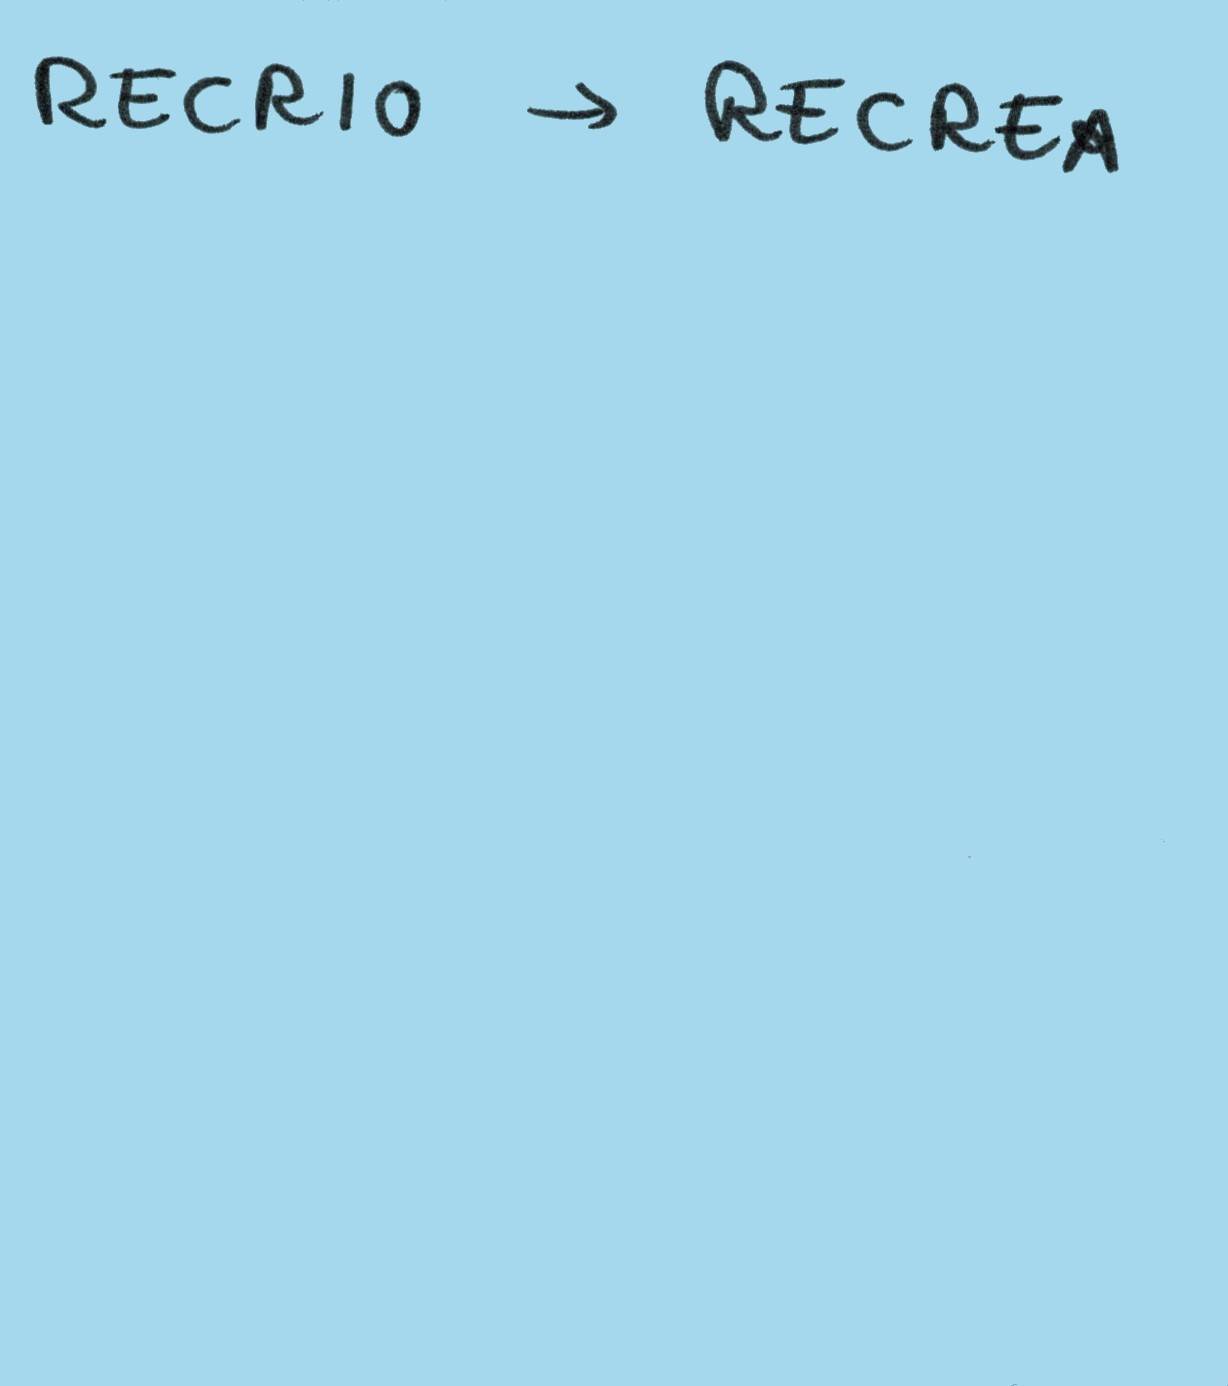 RECRIO → RECREA